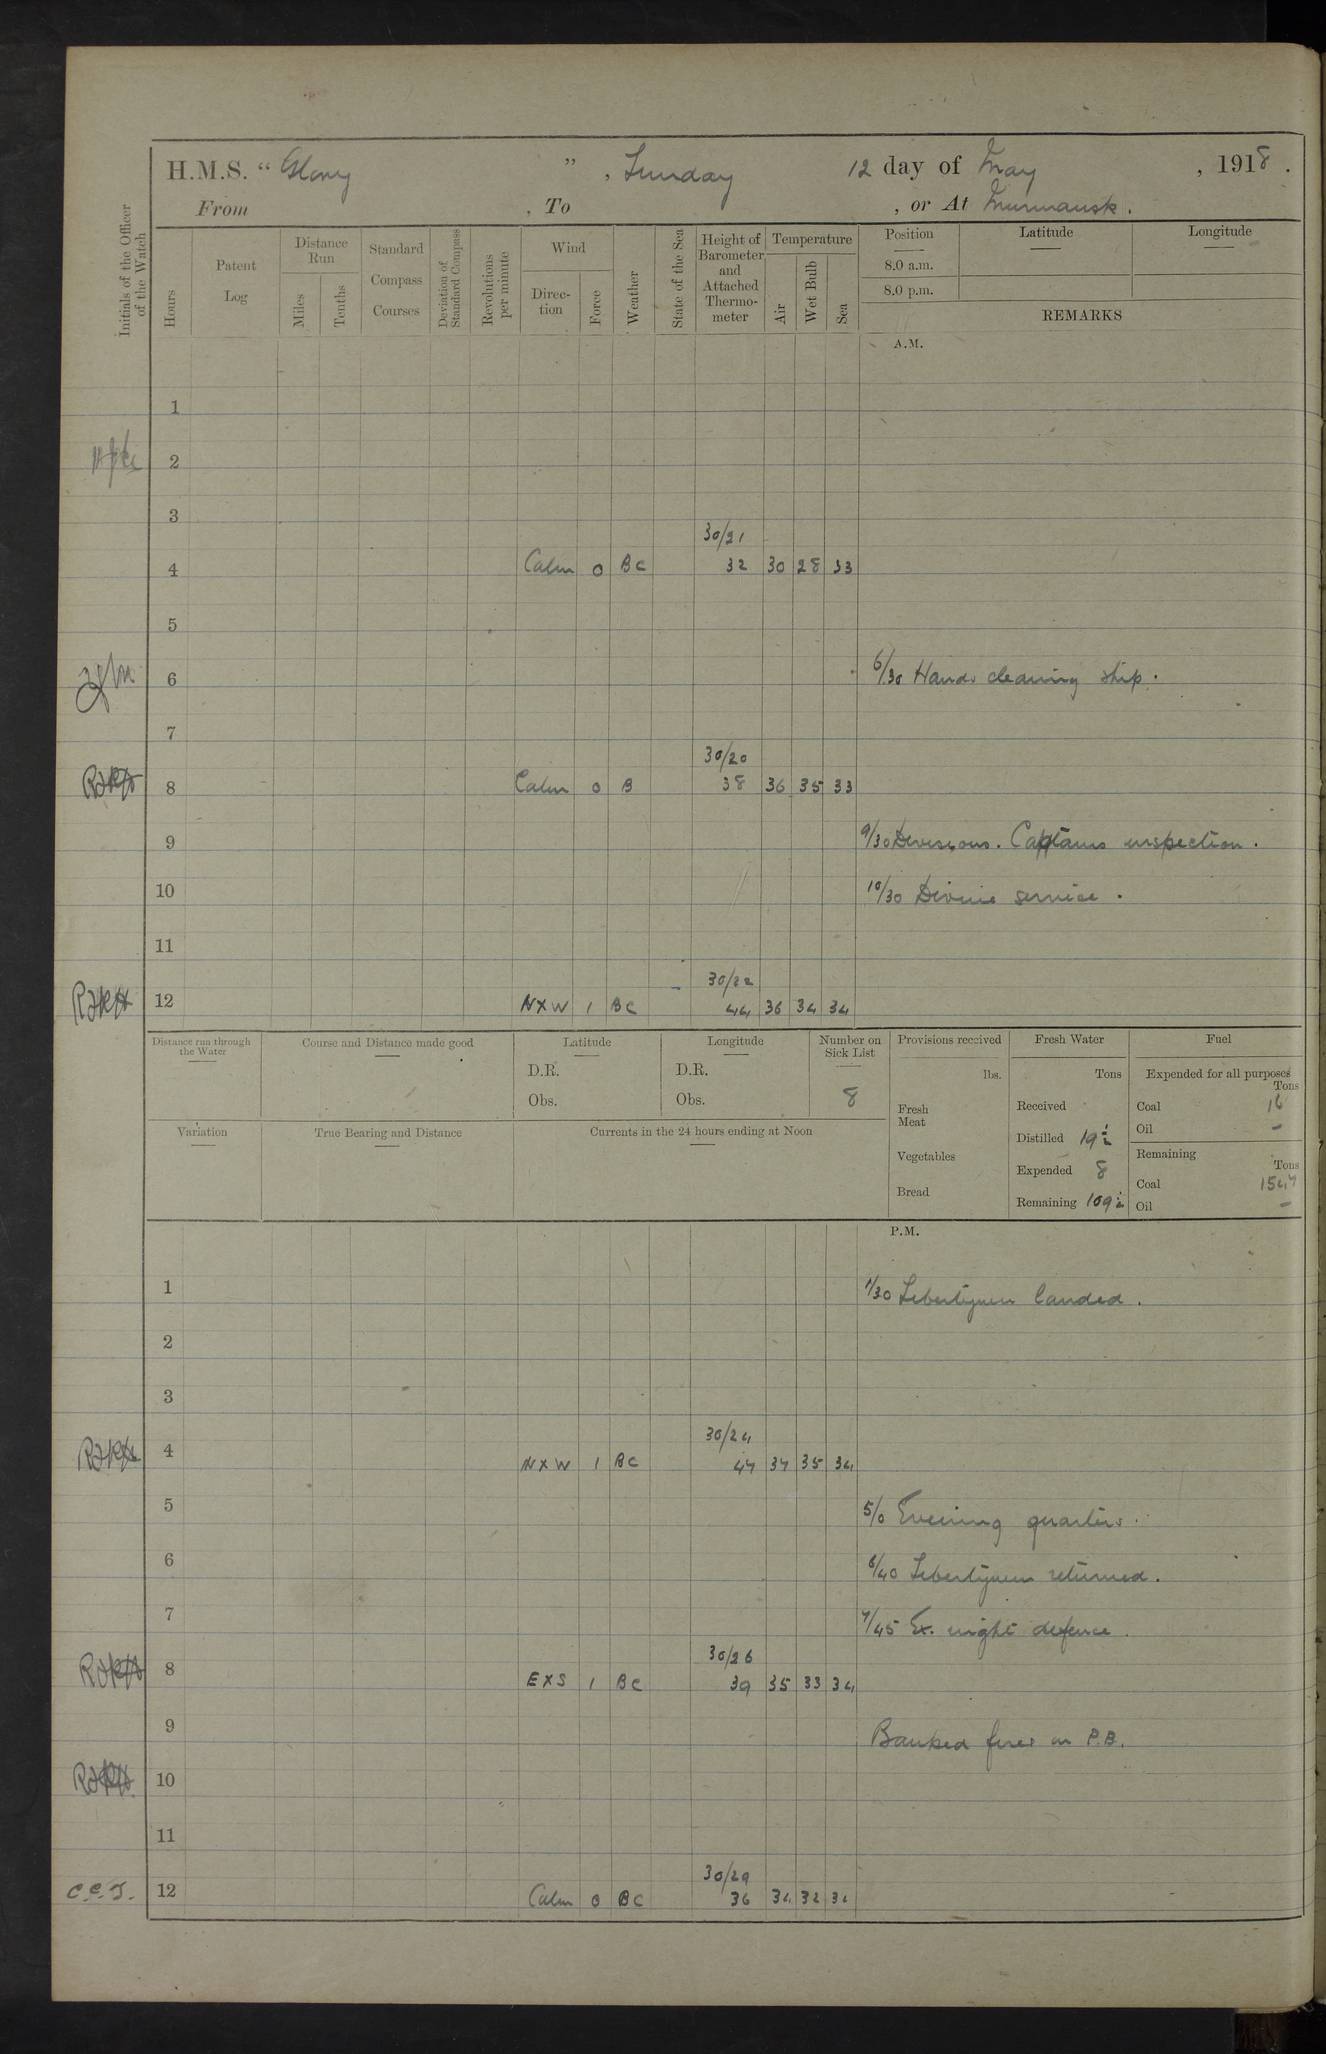 H.M.S. “ Glory ” , Sunday 12 day of May , 1918 .
From , To , or At Murmansk .
Initials of the Officer of the Watch
Hours
Patent Log
Distance Run
Miles
Tenths
Standard Compass Courses
Deviation of Standard Compass
Revolutions per minute
Wind
Direc-tion
Force
Weather
State of the Sea
Height of Barometer and Attached Thermo-meter
Temperature
Air
Wet Bulb
Sea
Position
Latitude
Longitude
8.0 a.m.
8.0 p.m.
REMARKS
A.M.
1
2
3
30/21
4 Calm 0 BC 32 30 28 33
5
6 6/30 Hands cleaning ship.
7
30/20
8 Calm 0 B 38 36 35 33
9 9/30 Divisions. Captains inspection.
10 10/30 Divine service.
11
30/22
12 NXW 1 BC 44 36 34 34
Distance run through the Water
Course and Distance made good
Latitude
D.R.
Obs.
Longitude
D.R.
Obs.
Number on Sick List
8
Provisions received
lbs.
Fresh Meat
Vegetables
Bread
Fresh Water
Tons
Received
Distilled 19½
Expended 8
Remaining 109½
Fuel
Expended for all purposes
Tons
Coal 16
Oil -
Remaining
Tons
Coal 1547
Oil -
Variation
True Bearing and Distance
Currents in the 24 hours ending at Noon
P.M.
1 1/30 Libertymen landed.
2
3
30/24
4 NXW 1 BC 47 37 35 34
5 5/0 Evening quarters.
6 6/40 Libertymen returned.
7 7/45 Ex. night defence.
30/26
8 EXS 1 BC 39 35 33 34
9 Banked fires in P.B.
10
11
30/29
C.C.J. 12 Calm 0 BC 36 34 32 34